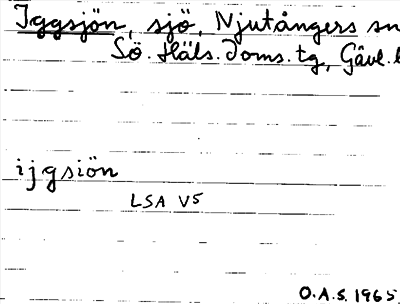 Iggsjön, sjö, Njutångers sn
Sö. Häls. doms. tg, Gävl. l
ijgsiön
LSA V5
O.A.S. 1965